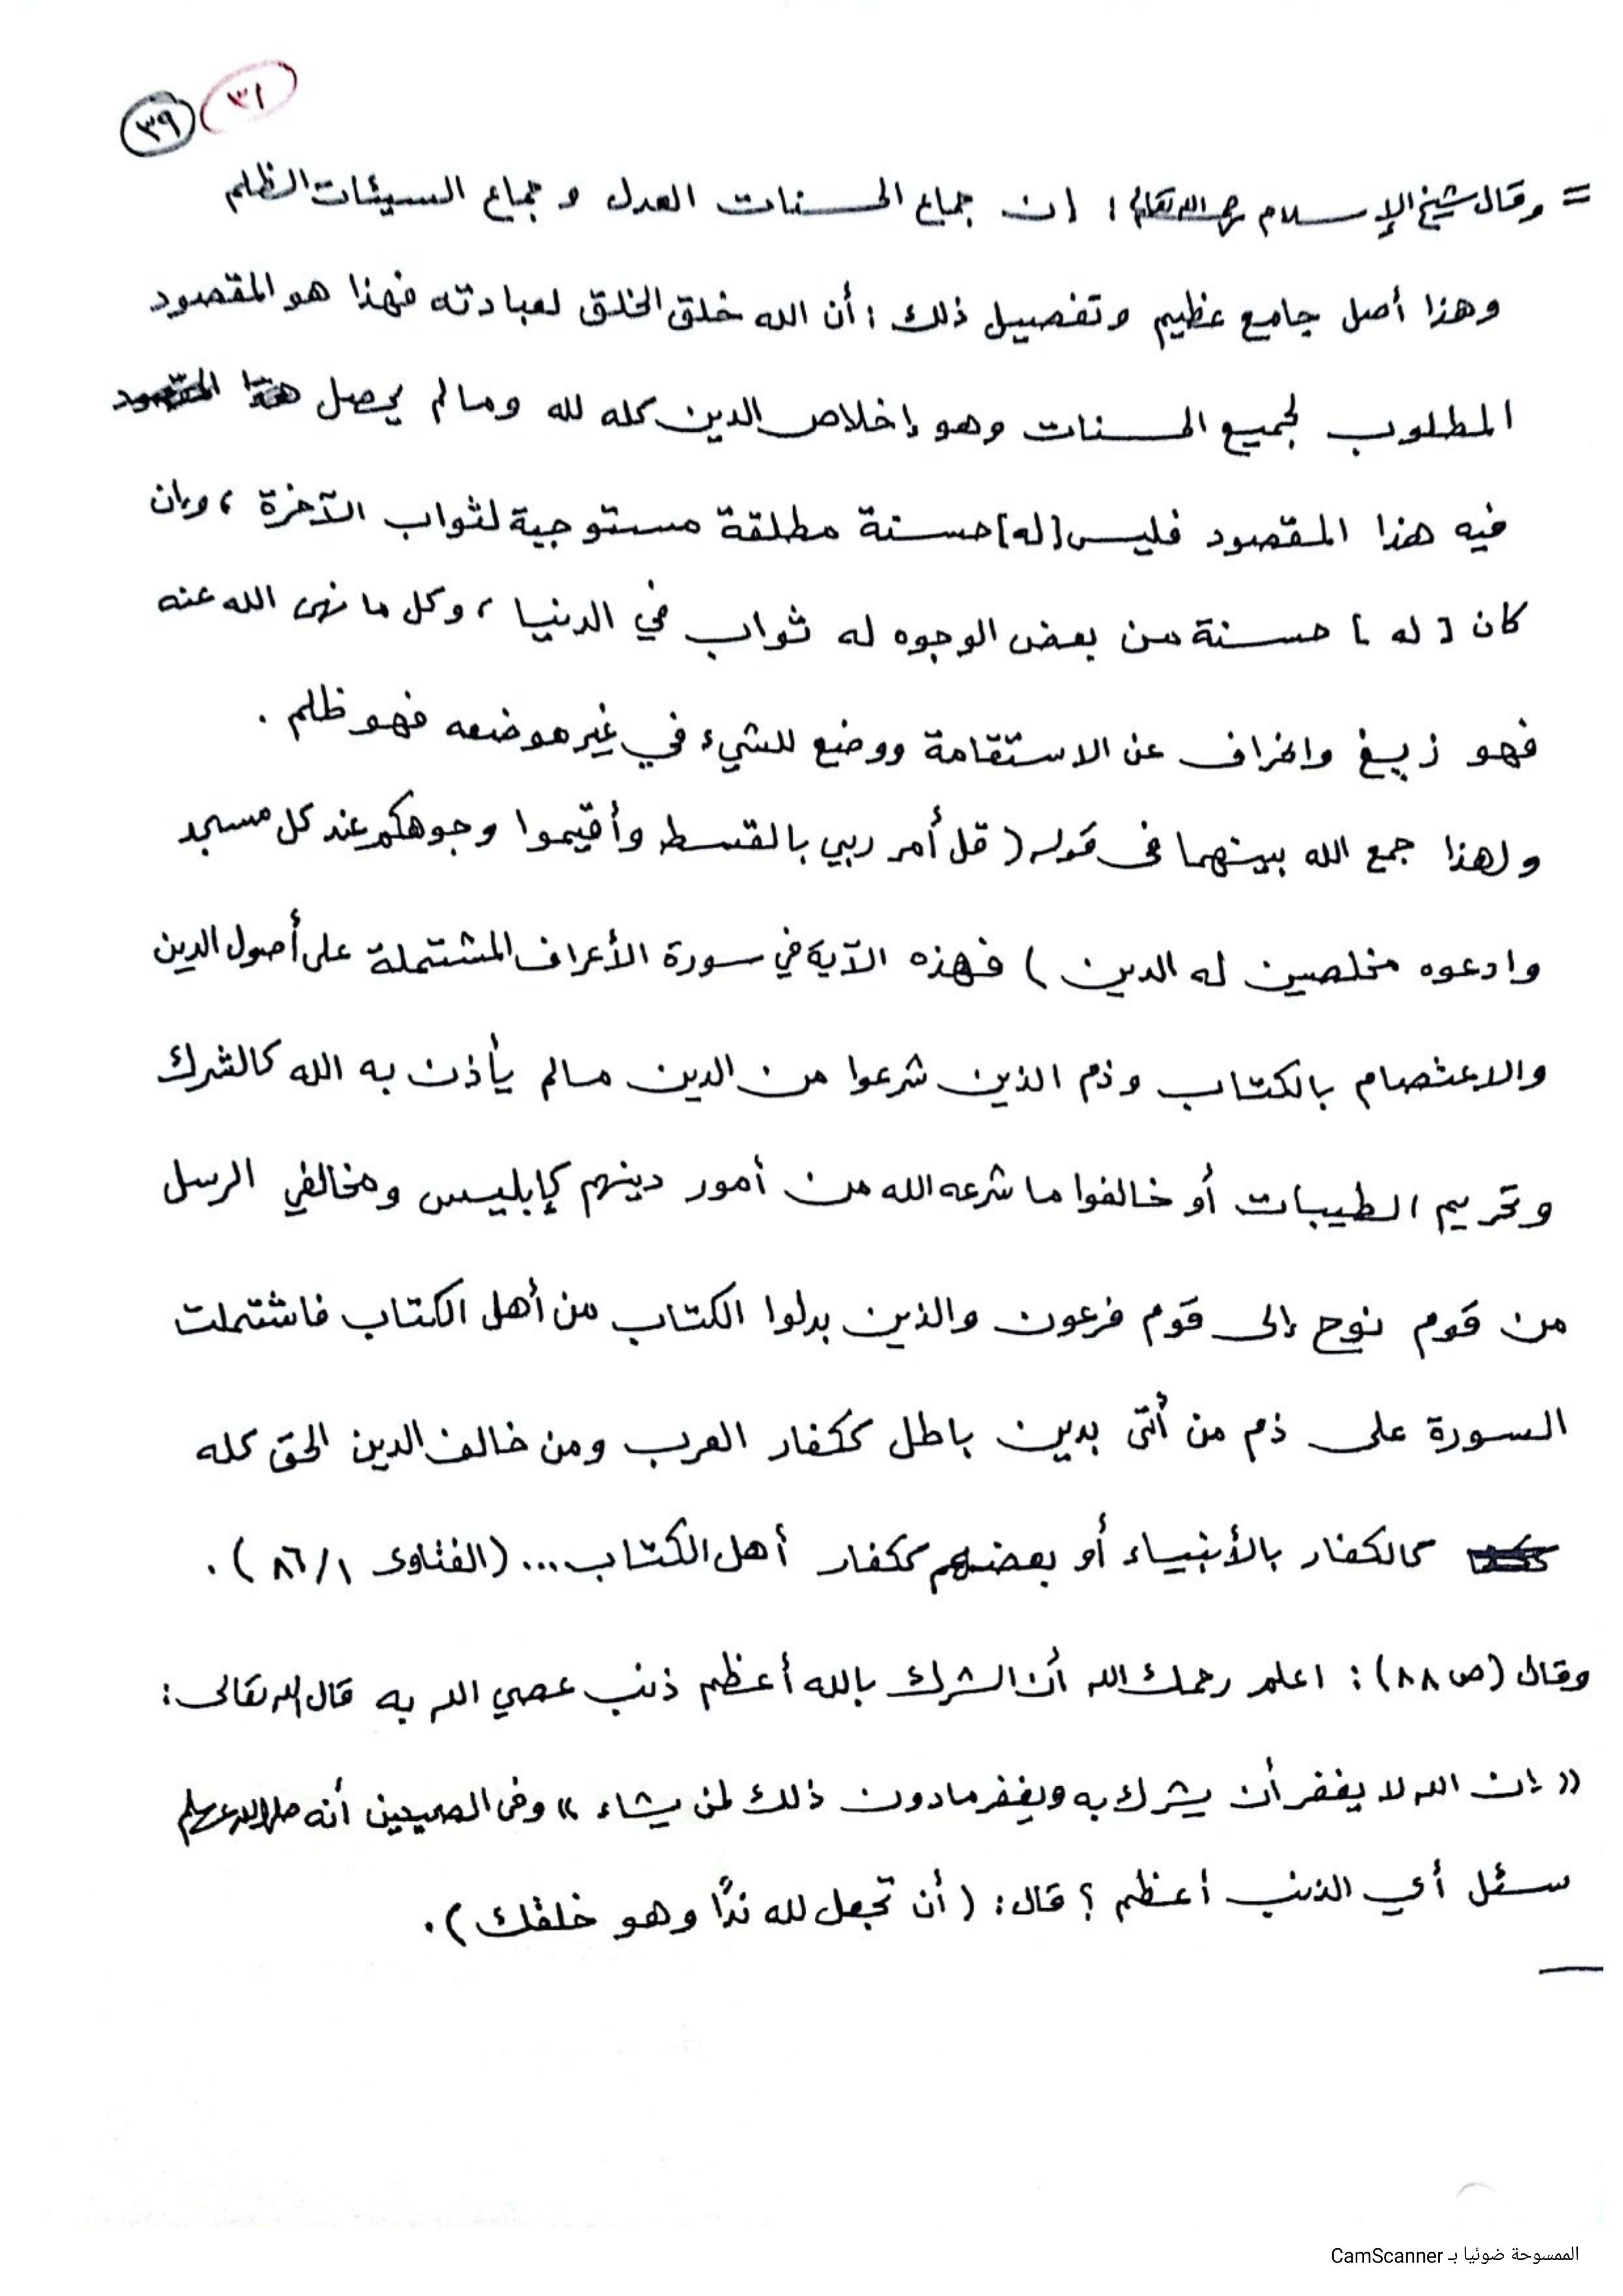 ٣١
٣٩
= وقال شيخ الإسلام رحمه الله تعالى : إن جماع الحسنات العدل و جماع السيئات الظلم
وهذا أصل جامع عظيم وتفصيل ذلك : أن الله خلق الخلق لعبادته فهذا هو المقصود
المطلوب لجميع الحسنات وهو إخلاص الدين كله لله ومالم يحصل
فيه هذا المقصود فليس [له] حسنة مطلقة مستوجبة لثواب الآخرة ، وإن
كان [ له ] حسنة من بعض الوجوه له ثواب في الدنيا ، وكل ما نهى الله عنه
فهو زيغ وانحراف عن الاستقامة ووضع للشيء في غير موضعه فهو ظلم .
ولهذا جمع الله بينهما في قوله ( قل أمر ربي بالقسط وأقيموا وجوهكم عند كل مسجد
وادعوه مخلصين له الدين ) فهذه الآية في سورة الأعراف المشتملة على أصول الدين
والاعتصام بالكتاب وذم الذين شرعوا من الدين مالم يأذن به الله كالشرك
وتحريم الطيبات أو خالفوا ما شرعه الله من أمور دينهم كإبليس ومخالفي الرسل
من قوم نوح إلى قوم فرعون والذين بدلوا الكتاب من أهل الكتاب فاشتملت
السورة على ذم من أتى بدين باطل ككفار العرب ومن خالف الدين الحق كله
كالكفار بالأنبياء أو بعضهم ككفار أهل الكتاب ... (الفتاوى ٨٦/١ ) .
وقال (ص ٨٨) : اعلم رحمك الله أن الشرك بالله أعظم ذنب عصي الله به قال الله تعالى :
« إن الله لا يغفر أن يشرك به ويغفر مادون ذلك لمن يشاء » وفي الصحيحين أنه صلى الله عليه وسلم
سئل أي الذنب أعظم ؟ قال : ( أن تجعل لله ندًا وهو خلقك ) .
الممسوحة ضوئيا بـ CamScanner